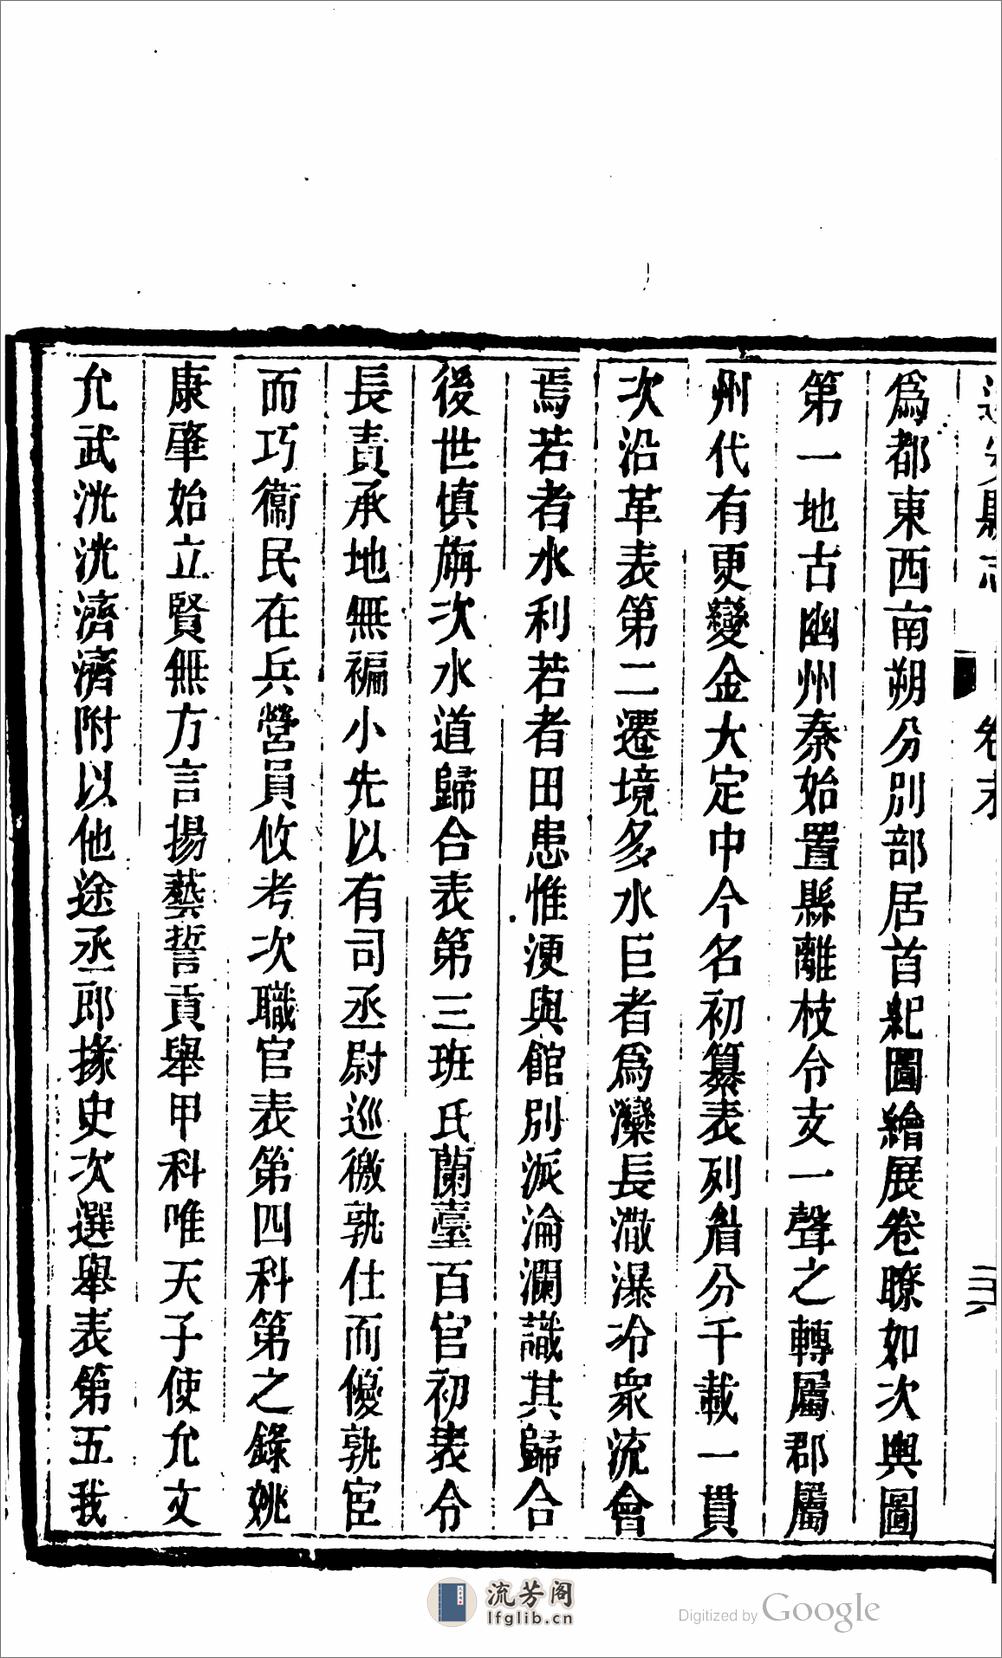 遷安縣志 卷末 二六
爲都東西南朔分別部居首紀圖繪展卷瞭如次輿圖
第一地古幽州秦始置縣離枝令支一聲之轉屬郡屬
州代有更變金大定中今名初纂表列眉分千載一貫
次沿革表第二遷境多水巨者爲灤長澈瀑冷衆流會
焉若者水利若者田患惟浭與館別派淪瀾識其歸合
後世慎旃次水道歸合表第三班氏蘭臺百官初表令
長責承地無褊小先以有司丞尉巡徼孰仕而優孰宦
而巧衞民在兵營員攸考次職官表第四科第之錄姚
康肇始立賢無方言揚藝誓貢舉甲科唯天子使允文
允武洸洸濟濟附以他途丞郎掾史次選舉表第五我
流芳阁
lfglib.cn
Digitized by Google